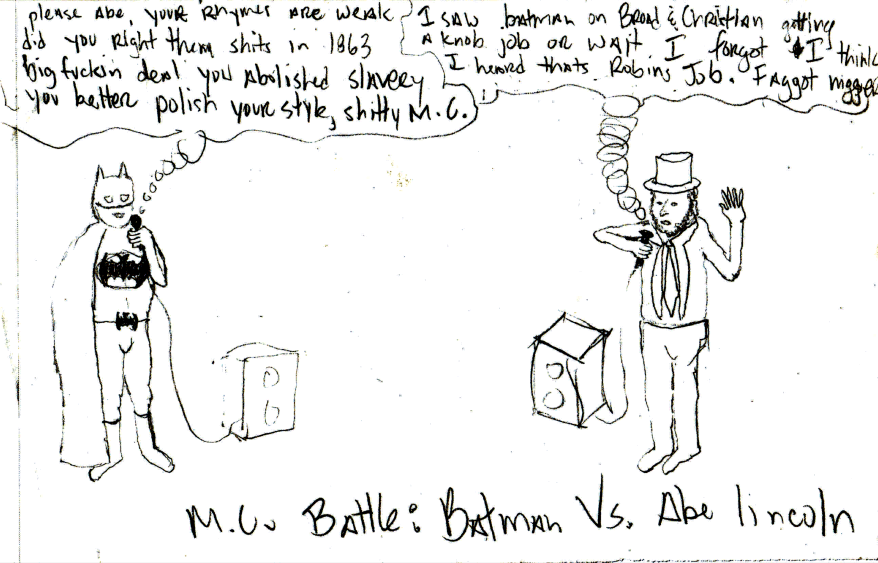 please Abe, your Rhymes are weak
did you Right them shits in 1863
big fuckin deal you Abolished slavery
you better polish your style, shitty M.C.
I saw batman on Broad & Christian getting
a knob job or wait I forgot I think
I heard thats Robins Job. Faggot nigger
M.C. Battle: Batman Vs. Abe lincoln